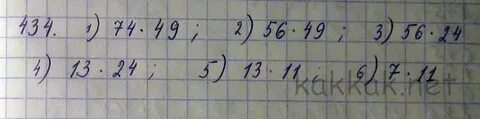 434. 1) 74·49; 2) 56·49; 3) 56·24
4) 13·24; 5) 13·11; 6) 7·11
kakkak.net